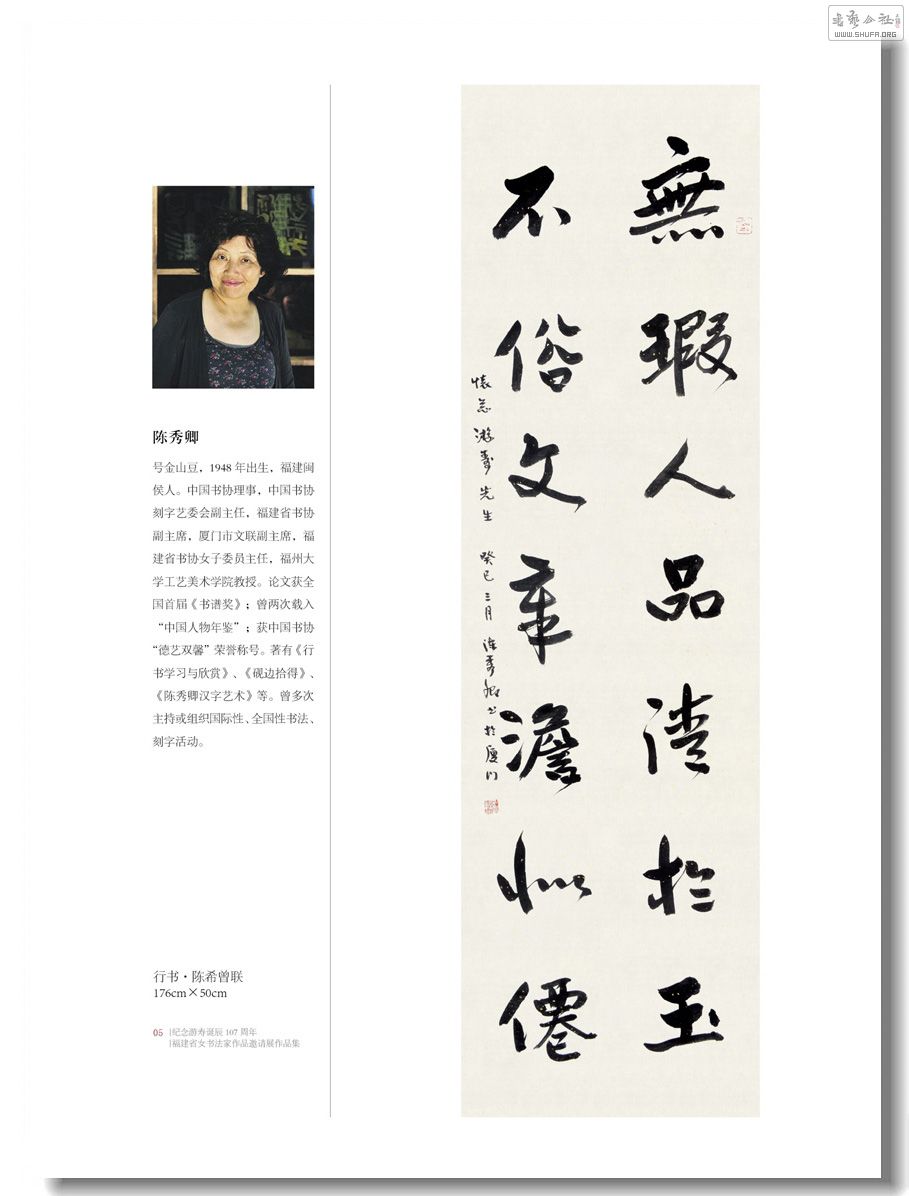 書藝公社
WWW.SHUFA.ORG
無瑕人品清於玉
不俗文章澹似僊
懷念游壽先生 癸巳三月 陈秀卿书於厦门
陈秀卿
号金山豆，1948 年出生，福建闽
侯人。中国书协理事，中国书协
刻字艺委会副主任，福建省书协
副主席，厦门市文联副主席，福
建省书协女子委员主任，福州大
学工艺美术学院教授。论文获全
国首届《书谱奖》；曾两次载入
“中国人物年鉴”；获中国书协
“德艺双馨”荣誉称号。著有《行
书学习与欣赏》、《砚边拾得》、
《陈秀卿汉字艺术》等。曾多次
主持或组织国际性、全国性书法、
刻字活动。
行书·陈希曾联
176cm×50cm
05 |纪念游寿诞辰 107 周年
|福建省女书法家作品邀请展作品集